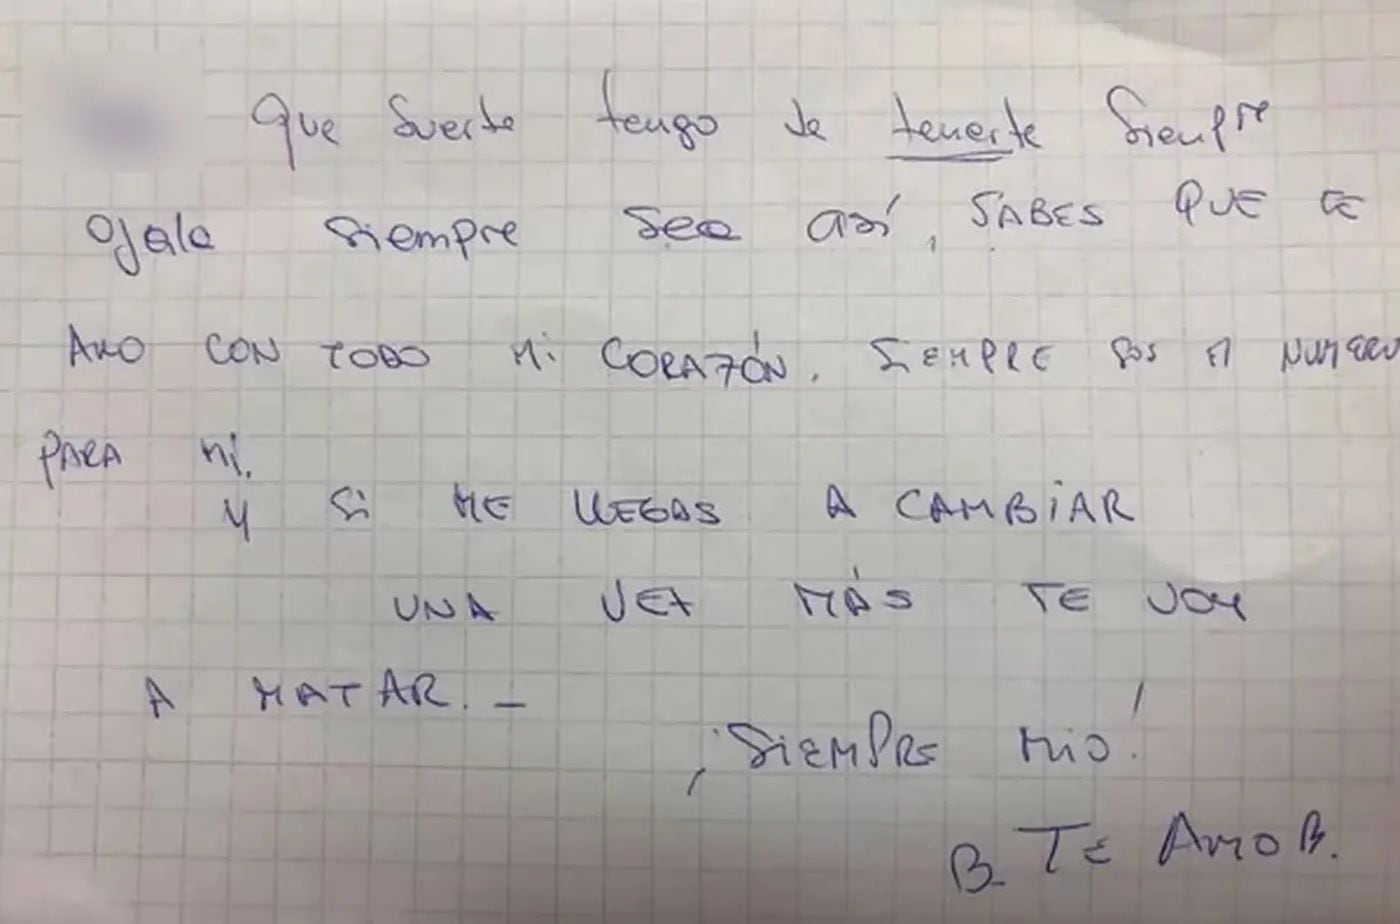 Que suerte tengo de tenerte siempre
Ojala siempre sea así, SABES QUE TE
AMO CON TODO Mi CORAZÓN. SiEMPRE SOS El NUMERO
PARA Mí.
Y Si ME LLEGAS A CAMBiAR
UNA VEZ MÁS TE VOY
A MATAR. -
¡SiEMPRE MIO!
B TE AMO B.